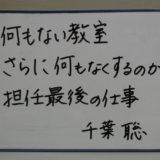 何もない教室
さらに何もなくするのが
担任最後の仕事
千葉 聡